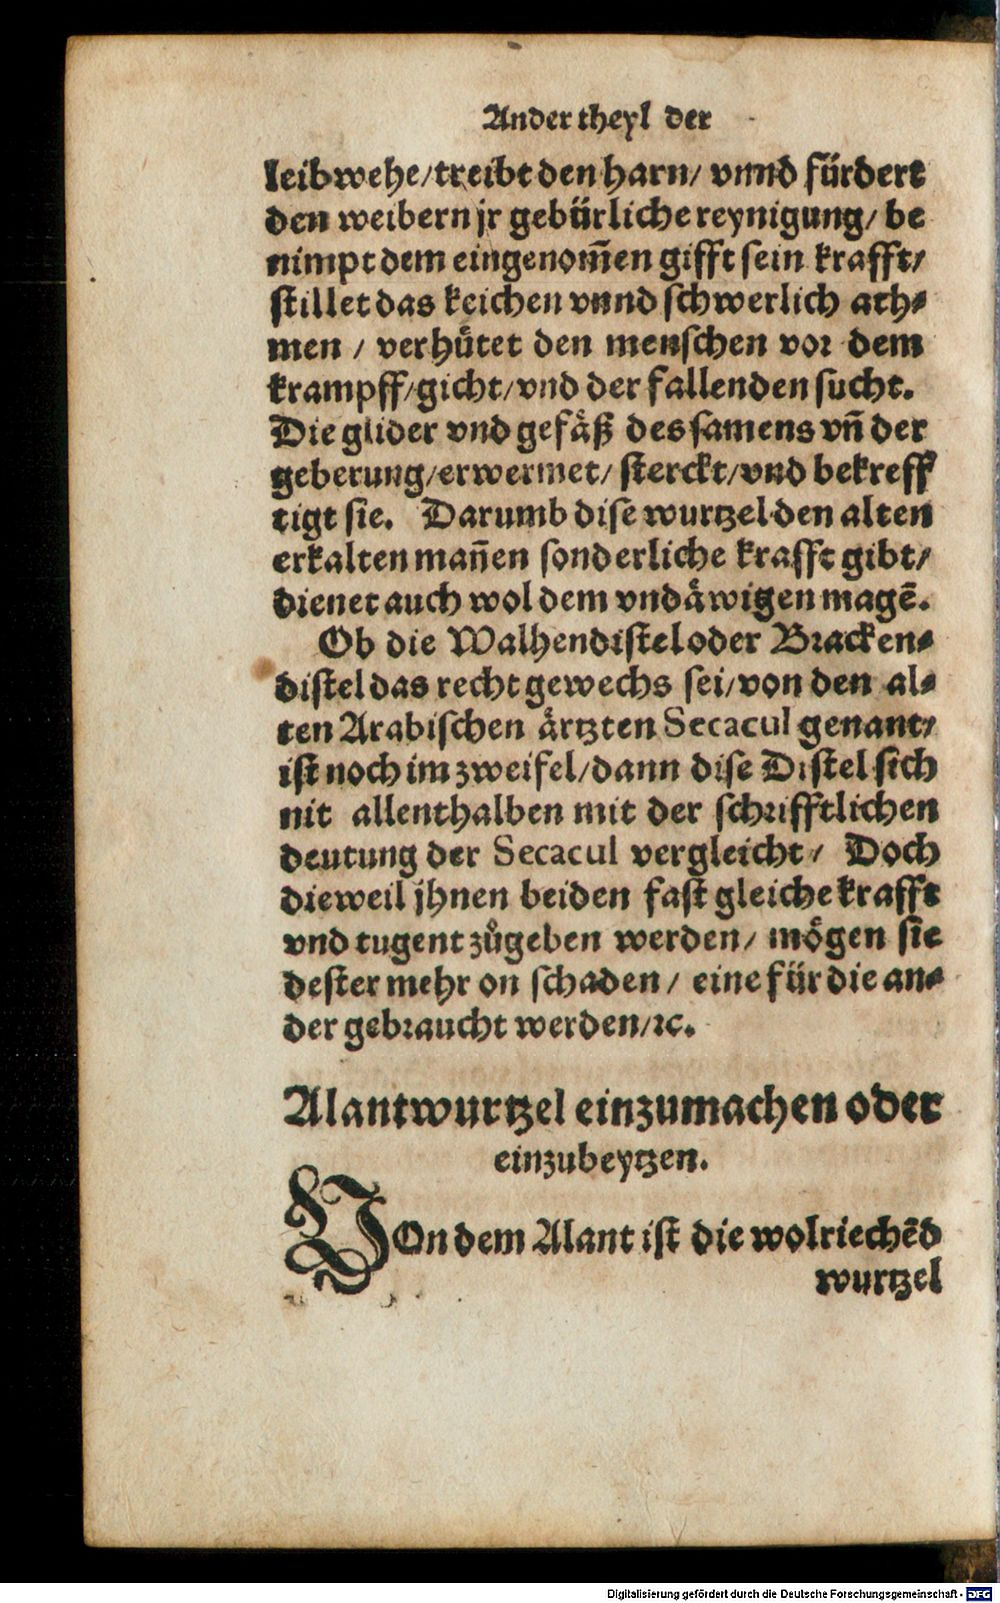 Ander theyl der
leibwehe/ treibt den harn/ vnnd fürdert
den weibern jr gebürliche reynigung/ be
nimpt dem eingenom̃en gifft sein krafft/
stillet das keichen vnnd schwerlich ath⸗
men / verhütet den menschen vor dem
krampff/ gicht/ vnd der fallenden sucht.
Die glider vnd gefäß des samens vñ der
geberung/ erwermet/ sterckt/ vnd bekreff
tigt sie. Darumb dise wurtzel den alten
erkalten mañen sonderliche krafft gibt/
dienet auch wol dem vndäwigen magē.
Ob die Walhendistel oder Bracken⸗
distel das recht gewechs sei/ von den al⸗
ten Arabischen ärtzten Secacul genant/
ist noch im zweifel/ dann dise Distel sich
nit allenthalben mit der schrifftlichen
deutung der Secacul vergleicht/ Doch
dieweil jhnen beiden fast gleiche krafft
vnd tugent zůgeben werden/ mögen sie
dester mehr on schaden/ eine für die an⸗
der gebraucht werden/ ꝛc.
Alantwurtzel einzumachen oder
einzubeytzen.
VOn dem Alant ist die wolriechēd
wurtzel
Digitalisierung gefördert durch die Deutsche Forschungsgemeinschaft - DFG